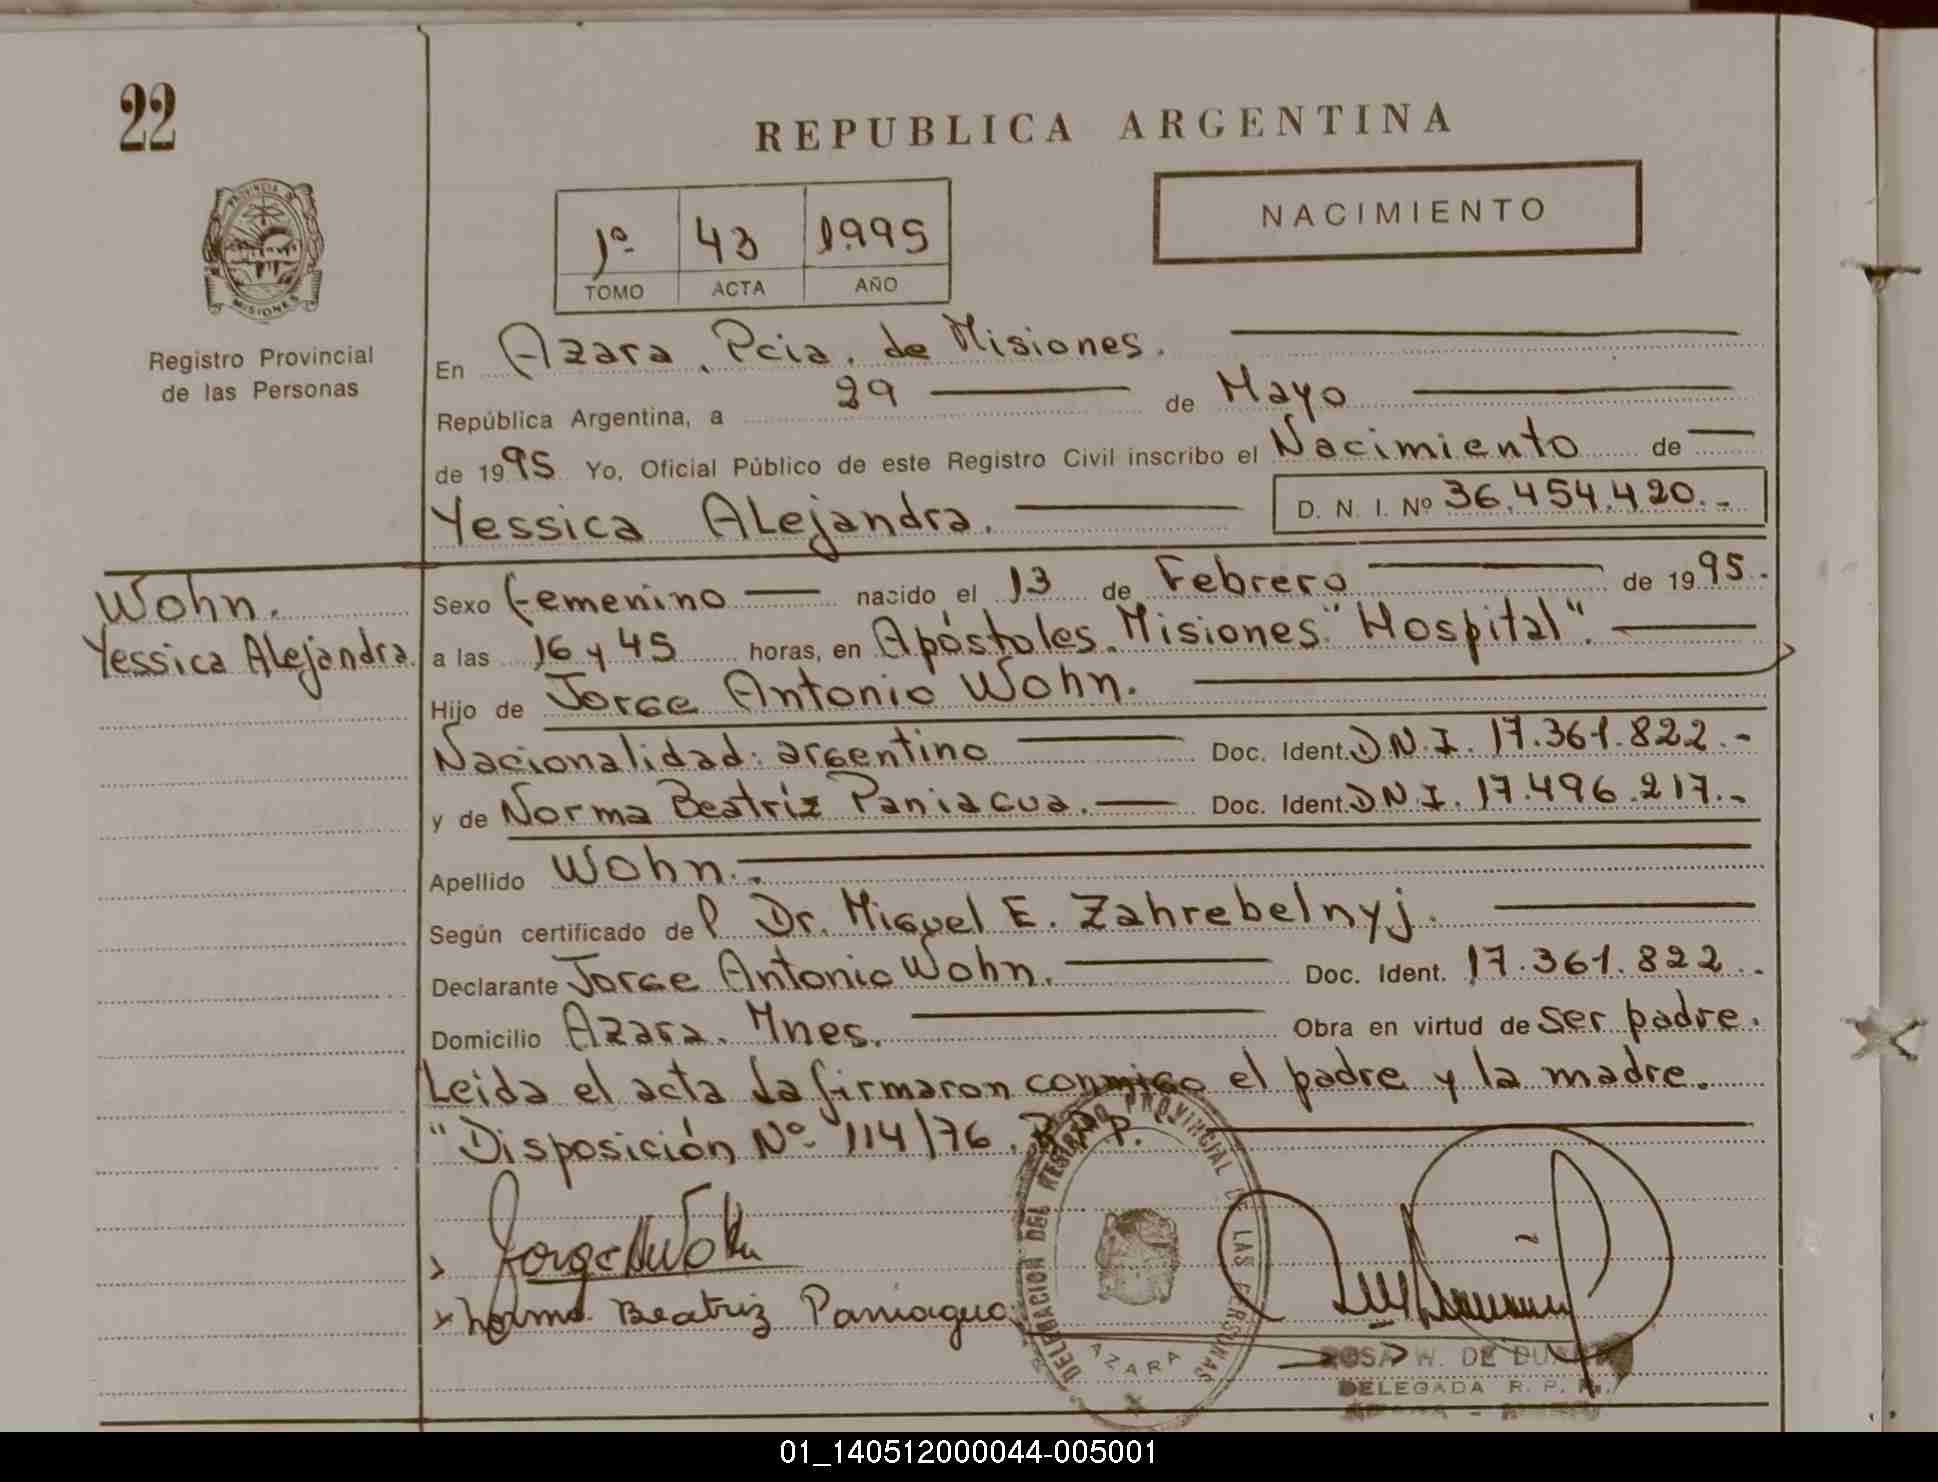 22
REPUBLICA ARGENTINA
NACIMIENTO
1º 43 1995
TOMO ACTA AÑO
PROVINCIA DE MISIONES
Registro Provincial
de las Personas
En Azara, Pcia. de Misiones.
República Argentina, a 29 de Mayo
de 1995 Yo, Oficial Público de este Registro Civil inscribo el Nacimiento de
Yessica Alejandra. D. N. I. Nº 36.454.420.-
Wohn.
Yessica Alejandra.
Sexo femenino nacido el 13 de Febrero de 1995.
a las 16 y 45 horas, en Apóstoles. Misiones "Hospital".
Hijo de Jorge Antonio Wohn.
Nacionalidad: argentino Doc. Ident. D.N.I. 17.361.822.-
y de Norma Beatriz Paniagua. Doc. Ident. D.N.I. 17.496.217.-
Apellido Wohn.
Según certificado del Dr. Miguel E. Zahrebelnyj.
Declarante Jorge Antonio Wohn. Doc. Ident. 17.361.822.
Domicilio Azara. Mnes. Obra en virtud de ser padre.
Leida el acta la firmaron conmigo el padre y la madre.
"Disposición Nº 114/76. R.P.P.
Jorge A Wohn
Norma Beatriz Paniagua
DELEGACION DEL REGISTRO PROVINCIAL DE LAS PERSONAS
AZARA
ROSA W. DE
DELEGADA R. P. P.
01_140512000044-005001